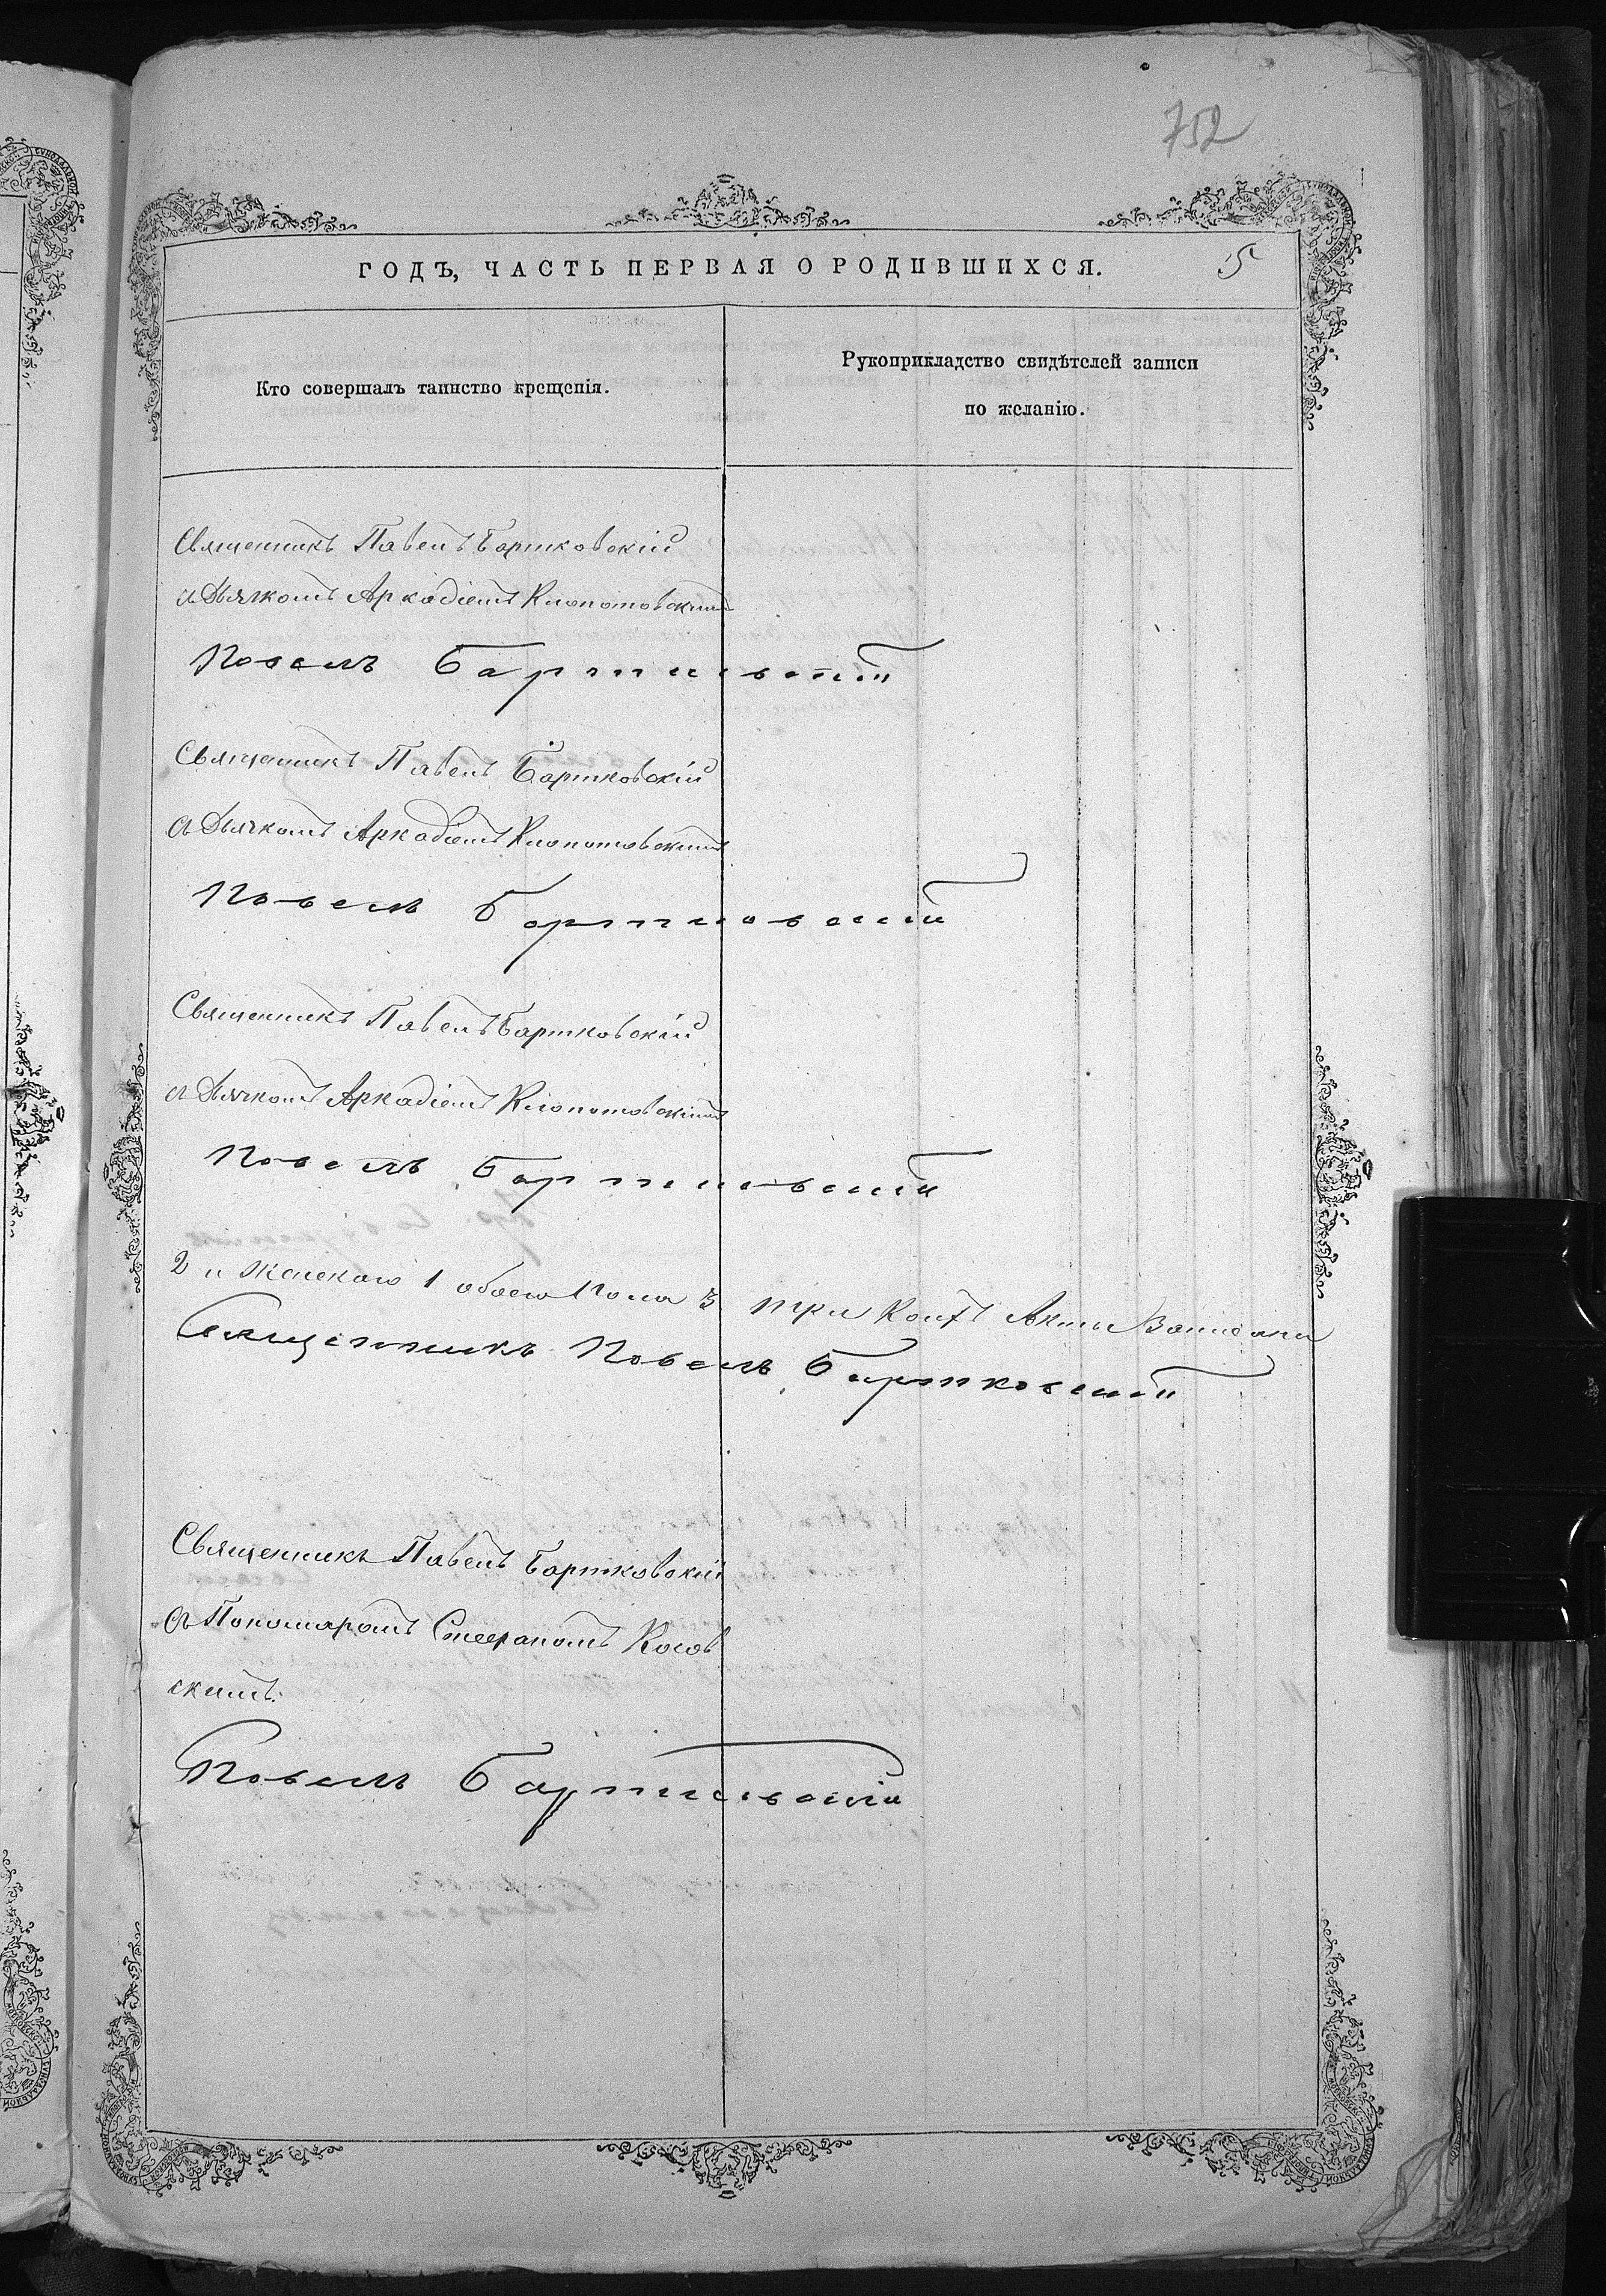 752
ГОДЪ, ЧАСТЬ ПЕРВАЯ О РОДИВШИХСЯ.
5
Кто совершалъ таинство крещенія.
Рукоприкладство свидѣтелей записи
по желанію.
Священникъ Павелъ Бартковскій
съ Дьячкомъ Аркадіемъ Клопотовскимъ
Павелъ Бартковскій
Священникъ Павелъ Бартковскій
съ Дьячкомъ Аркадіемъ Клопотовскимъ
Павелъ Бартковскій
Священникъ Павелъ Бартковскій
съ Дьячкомъ Аркадіемъ Клопотовскимъ
Павелъ Бартковскій
2 и Женскаго 1 обоего Пола 3 три Коихъ Акты Записаны
Священникъ Павелъ Бартковскій
Священникъ Павелъ Бартковскій
съ Пономаромъ Стефаномъ Косов
скимъ.
Павелъ Бартковскій